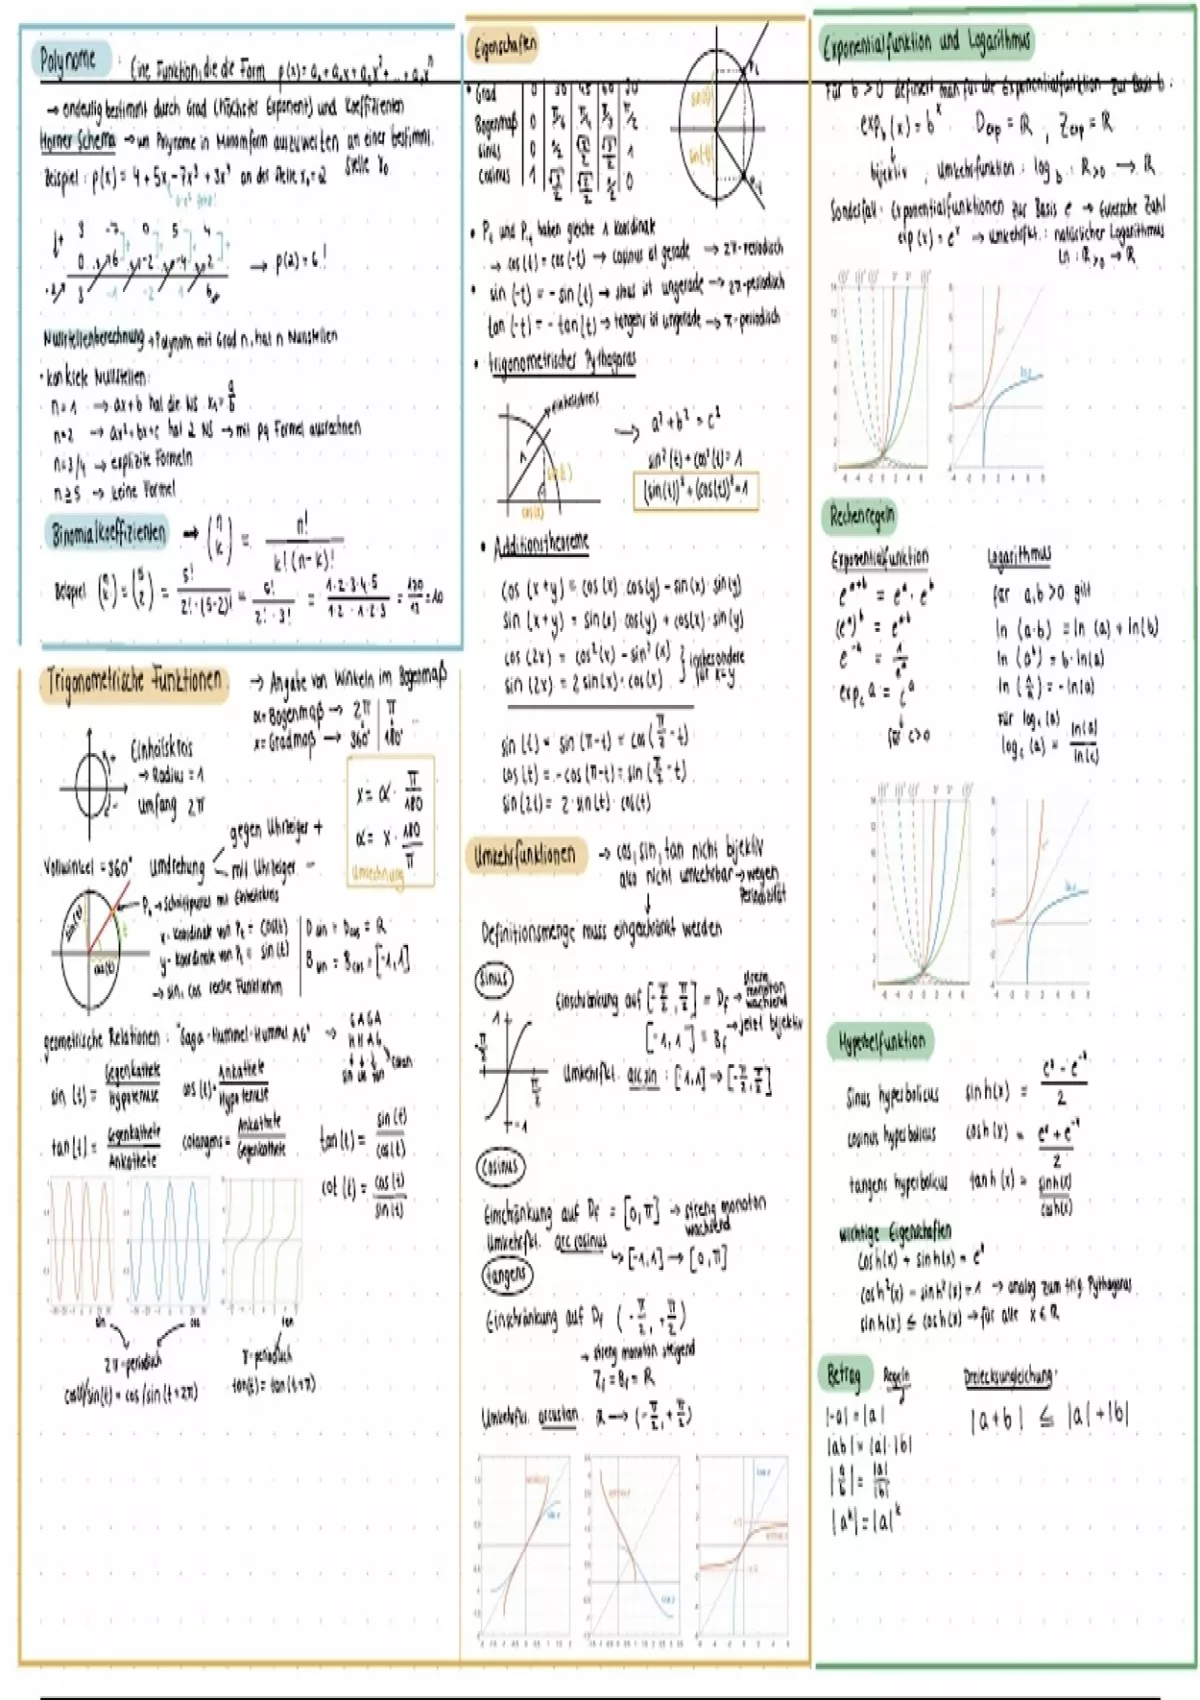 Polynome : Eine Funktion, die die Form p(x) = a₀ + a₁x + a₂x² + ... + aₙxⁿ
→ eindeutig bestimmt durch Grad (höchster Exponent) und Koeffizienten
Horner Schema → um Polynome in Monomform auszuwerten an einer bestimmt. Stelle x₀
Beispiel: p(x) = 4 + 5x - 7x³ + 3x⁴ an der Stelle x₀ = 2
3 -7 0 5 4
0 6 -2 -4 2
3 -1 -2 1 6
→ p(2) = 6!
Nullstellenberechnung → Polynom mit Grad n, hat n Nullstellen
• konkrete Nullstellen:
n = 1 → ax+b hat die NS
n=2 → ax²+bx+c hat 2 NS → mit pq Formel ausrechnen
n=3/4 → explizite Formeln
n ≥ 5 → keine Formel
Binomialkoeffizienten → (n k) = n! / k!(n-k)!
Beispiel (n k) = (5 2) = 5! / 2!·(5-2)! = 5! / 2!·3! = 1·2·3·4·5 / 1·2·1·2·3 = 120/12 = 10
Trigonometrische Funktionen → Angabe von Winkeln im Bogenmaß
x = Bogenmaß → 2π | π ...
α = Gradmaß → 360° | 180°
Einheitskreis
→ Radius = 1
Umfang 2π
x = α · π/180
α = x · 180/π
Umrechnung
Vollwinkel = 360° Umdrehung
gegen Uhrzeiger +
mit Uhrzeiger -
Pₜ → Schnittpunkt mit Einheitskreis
x-Koordinate von Pₜ = cos(t)
y-Koordinate von Pₜ = sin(t)
→ sin, cos reelle Funktionen
D sin = D cos = R
B sin = B cos = [-1,1]
sin(t)
cos(t)
geometrische Relationen: "Gaga-Hummel-Hummel AG" →
GAGA
HHAG
sin cos tan cotan
sin(t) = Gegenkathete / Hypotenuse
cos(t) = Ankathete / Hypotenuse
tan(t) = Gegenkathete / Ankathete
cotangens = Ankathete / Gegenkathete
tan(t) = sin(t) / cos(t)
cot(t) = cos(t) / sin(t)
sin cos tan
2π-periodisch
cos/sin(t) = cos/sin(t+2π)
π-periodisch
tan(t) = tan(t+π)
Eigenschaften
• Grad 0 30 45 60 90
Bogenmaß 0 π/6 π/4 π/3 π/2
sinus 0 1/2 √2/2 √3/2 1
cosinus 1 √3/2 √2/2 1/2 0
sin(t)
sin(t)
Pₜ
P₋ₜ
• Pₜ und P₋ₜ haben gleiche x Koordinate
→ cos(t) = cos(-t) → cosinus ist gerade → 2π-periodisch
• sin(-t) = -sin(t) → sinus ist ungerade → 2π-periodisch
tan(-t) = -tan(t) → tangens ist ungerade → π-periodisch
• trigonometrischer Pythagoras
Einheitskreis
1
cos(t)
→ a² + b² = c²
sin²(t) + cos²(t) = 1
(sin(t))² + (cos(t))² = 1
• Additionstheoreme
cos(x+y) = cos(x)·cos(y) - sin(x)·sin(y)
sin(x+y) = sin(x)·cos(y) + cos(x)·sin(y)
cos(2x) = cos²(x) - sin²(x)
sin(2x) = 2sin(x)·cos(x)
} insbesondere für x=y
sin(t) = sin(π-t) = cos(π/2 - t)
cos(t) = -cos(π-t) = sin(π/2 - t)
sin(2t) = 2·sin(t)·cos(t)
Umkehrfunktionen → cos, sin, tan nicht bijektiv
also nicht umkehrbar → wegen Periodizität
Definitionsmenge muss eingeschränkt werden
sinus
Einschränkung auf [-π/2, π/2] = Df → streng monoton wachsend
[-1,1] = Bf → jetzt bijektiv
Umkehrfkt. arcsin : [-1,1] → [-π/2, π/2]
cosinus
Einschränkung auf Df = [0,π] → streng monoton wachsend
Umkehrfkt. arccosinus
↳ [-1,1] → [0,π]
tangens
Einschränkung auf Df (-π/2, +π/2)
→ streng monoton steigend
Zf = Bf = R
Umkehrfkt. arcustan. R → (-π/2, +π/2)
Exponentialfunktion und Logarithmus
Für b > 0 definiert man für die Exponentialfunktion zur Basis b:
exp_b(x) = bˣ Dexp = R, Zexp = R
bijektiv, Umkehrfunktion: log_b : R>0 → R
Sonderfall: Exponentialfunktionen zur Basis e → Eulersche Zahl
exp(x) = eˣ → Umkehrfkt.: natürlicher Logarithmus
ln: R>0 → R
Rechenregeln
Exponentialfunktion
eᵃ⁺ᵇ = eᵃ · eᵇ
(eᵃ)ᵇ = eᵃᵇ
e⁻ᵇ = 1/eᵇ
exp_c a = cᵃ
für c>0
Logarithmus
für a,b > 0 gilt
ln(a·b) = ln(a) + ln(b)
ln(aᵇ) = b·ln(a)
ln(1/a) = -ln(a)
Für log_c(a)
log_c(a) = ln(a) / ln(c)
Hyperbelfunktion
Sinus hyperbolicus sinh(x) = eˣ - e⁻ˣ / 2
cosinus hyperbolicus cosh(x) = eˣ + e⁻ˣ / 2
tangens hyperbolicus tanh(x) = sinh(x) / cosh(x)
wichtige Eigenschaften
cosh(x) + sinh(x) = eˣ
cosh²(x) - sinh²(x) = 1 → analog zum trig. Pythagoras
sinh(x) ≤ cosh(x) → für alle x ∈ R
Betrag Regeln
|-a| = |a|
|ab| = |a|·|b|
|a/b| = |a|/|b|
|aᵏ| = |a|ᵏ
Dreiecksungleichung:
|a+b| ≤ |a|+|b|